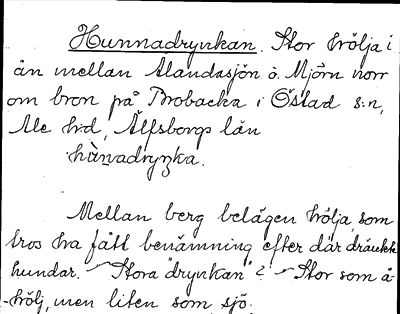 Hunnadrynkan. Stor hölja i
ån mellan Alandasjön o. Mjörn norr
om bron på Brobacka i Östad s:n,
Ale h:d, Älfsborgs län
hùnadryŋka.
Mellan berg belägen hölja, som
tros ha fått benämning efter där dränkta
hundar. – Stora "drynkan"? – Stor som å-
-hölj, men liten som sjö.